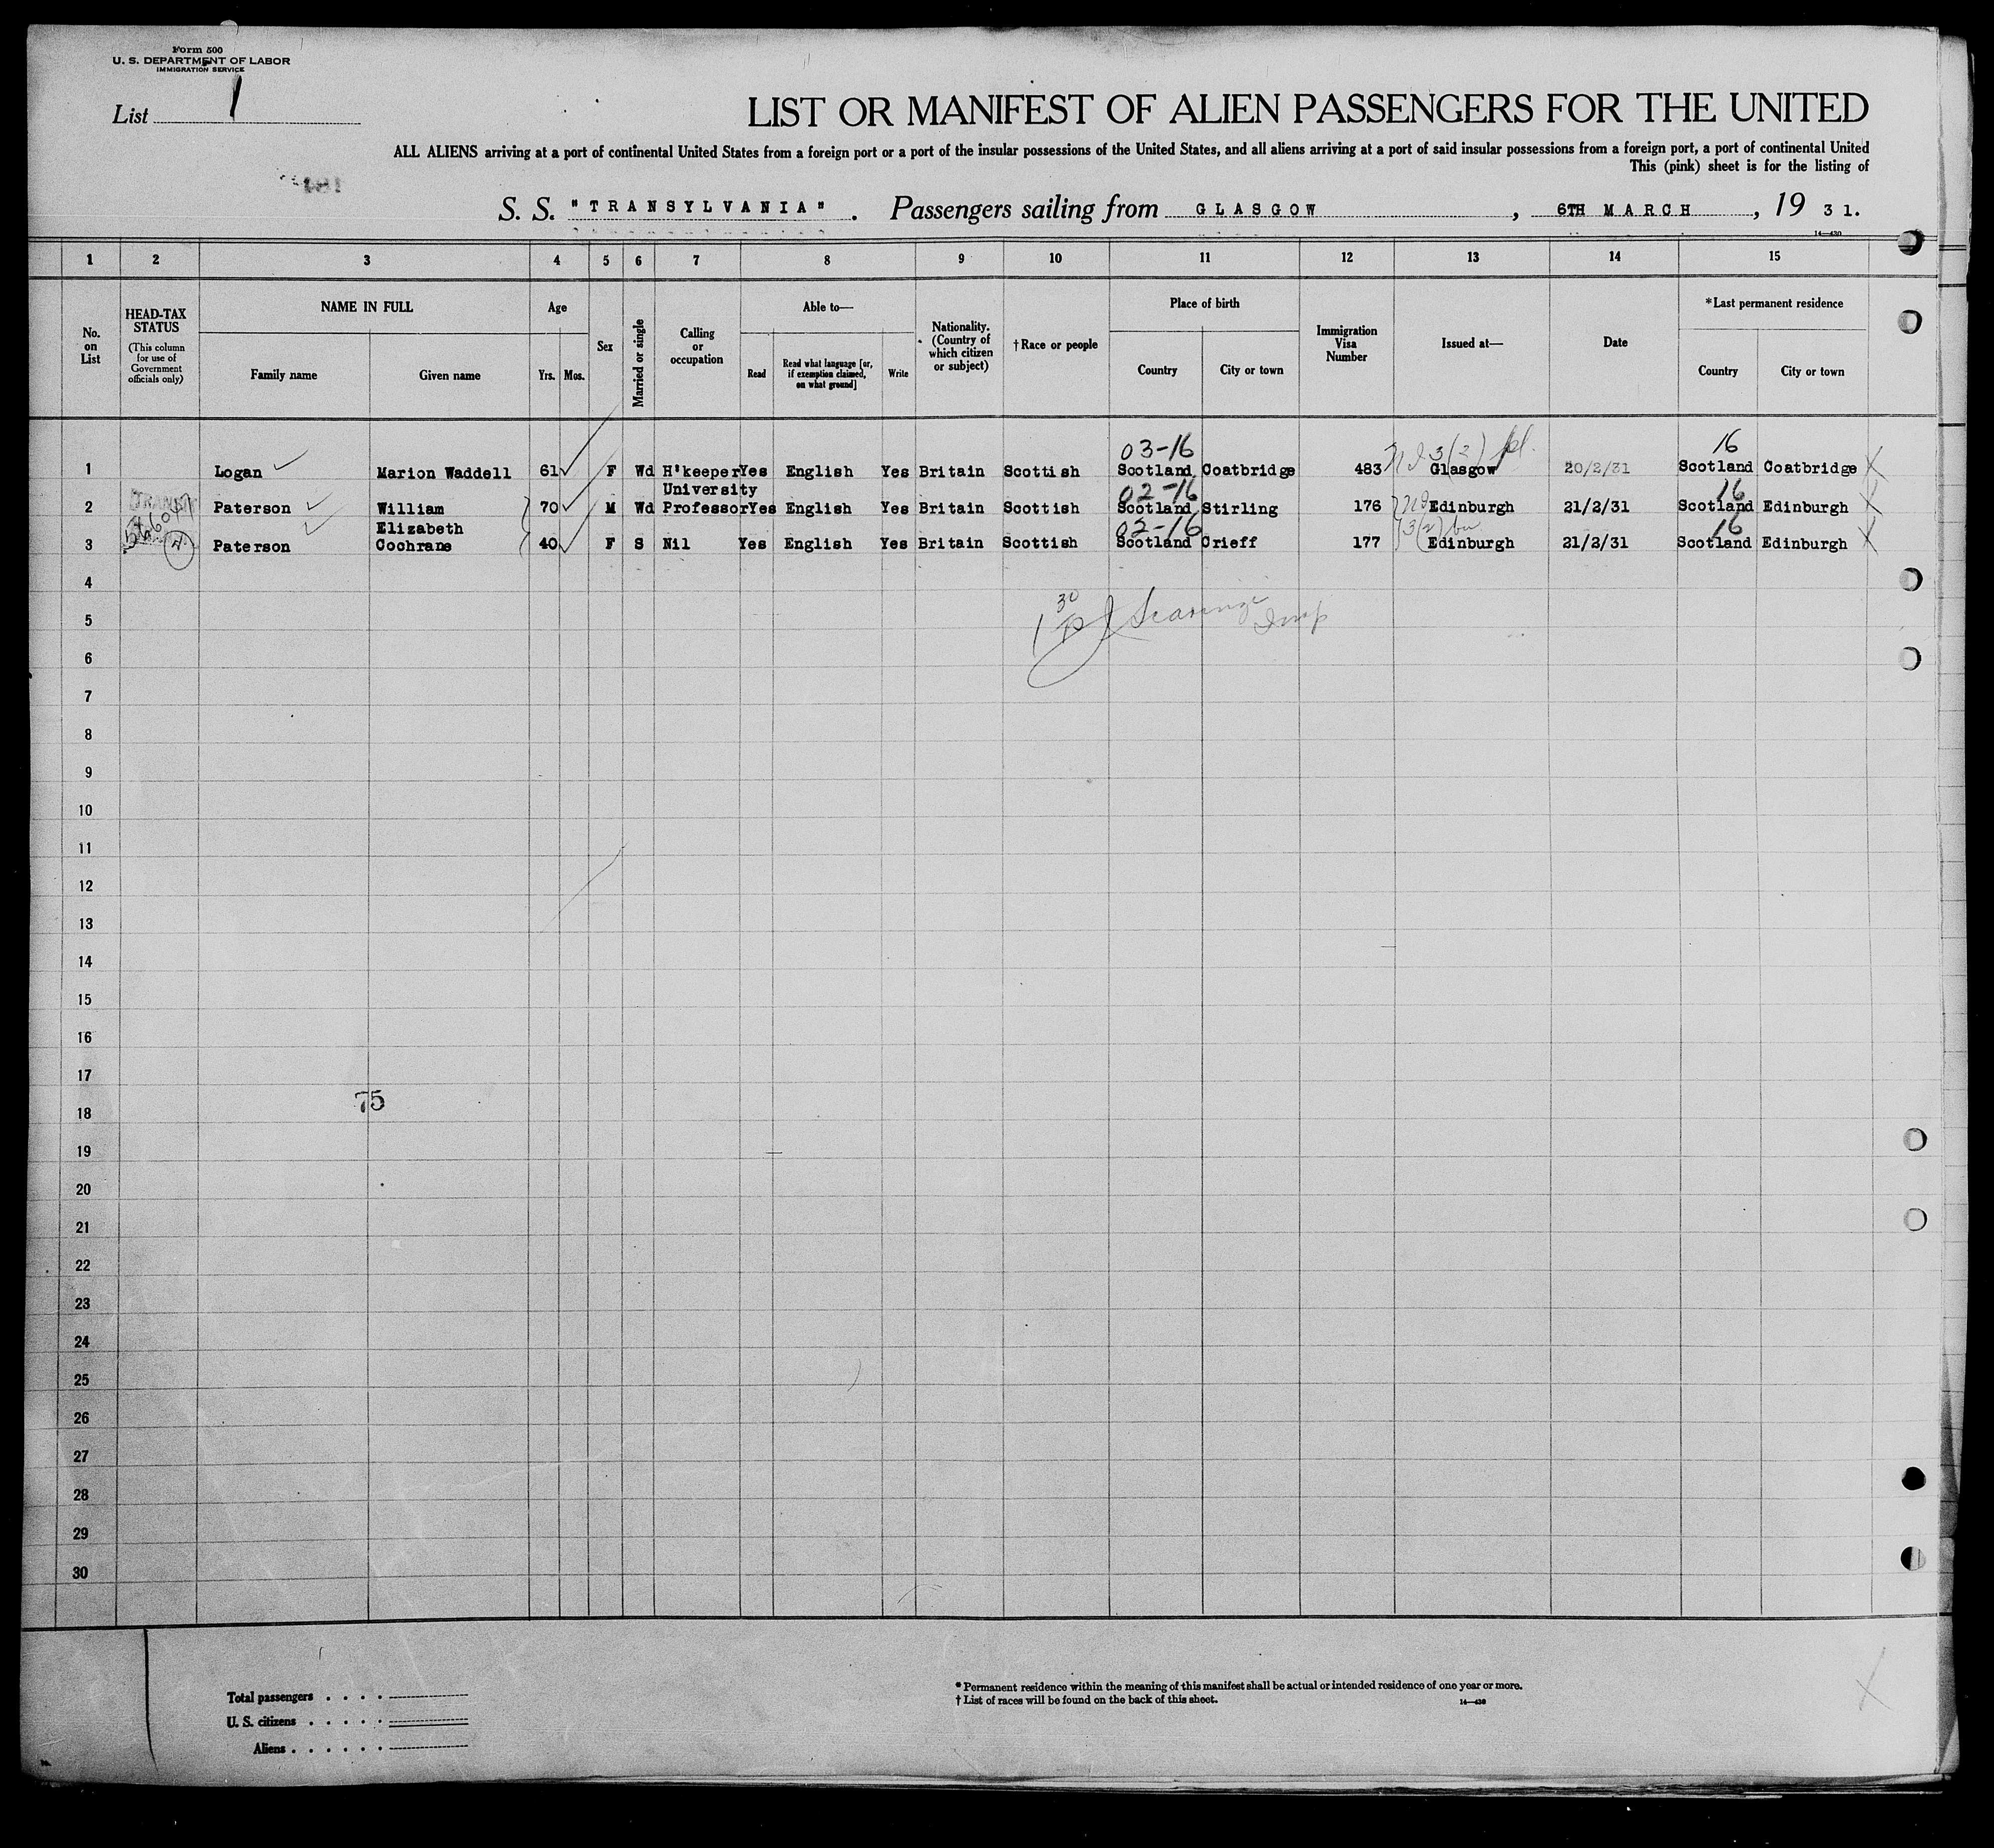 Form 500
U. S. DEPARTMENT OF LABOR
IMMIGRATION SERVICE
List 1
LIST OR MANIFEST OF ALIEN PASSENGERS FOR THE UNITED
ALL ALIENS arriving at a port of continental United States from a foreign port or a port of the insular possessions of the United States, and all aliens arriving at a port of said insular possessions from a foreign port, a port of continental United
This (pink) sheet is for the listing of
S. S. "TRANSYLVANIA". Passengers sailing from GLASGOW, 6TH MARCH, 19 31.
14—430
1 2 3 4 5 6 7 8 9 10 11 12 13 14 15
No. on List
HEAD-TAX STATUS
(This column for use of Government officials only)
NAME IN FULL
Family name Given name
Age
Yrs. Mos.
Sex
Married or single
Calling or occupation
Able to—
Read
Read what language [or, if exemption claimed, on what ground]
Write
Nationality. (Country of which citizen or subject)
†Race or people
Place of birth
Country City or town
Immigration Visa Number
Issued at—
Date
*Last permanent residence
Country City or town
03-16 3(2) 16
1 Logan Marion Waddell 61 F Wd H'keeper Yes English Yes Britain Scottish Scotland Coatbridge 483 Glasgow 20/2/31 Scotland Coatbridge
University 02-16 16
2 Paterson William 70 M Wd Professor Yes English Yes Britain Scottish Scotland Stirling 176 Edinburgh 21/2/31 Scotland Edinburgh
Elizabeth 02-16 16
3 Paterson Cochrane 40 F S Nil Yes English Yes Britain Scottish Scotland Crieff 177 Edinburgh 21/2/31 Scotland Edinburgh
4
5
6
7
8
9
10
11
12
13
14
15
16
17
75
18
19
20
21
22
23
24
25
26
27
28
29
30
Total passengers . . . .
U. S. citizens . . . . .
Aliens . . . . . .
* Permanent residence within the meaning of this manifest shall be actual or intended residence of one year or more.
† List of races will be found on the back of this sheet.
14—430